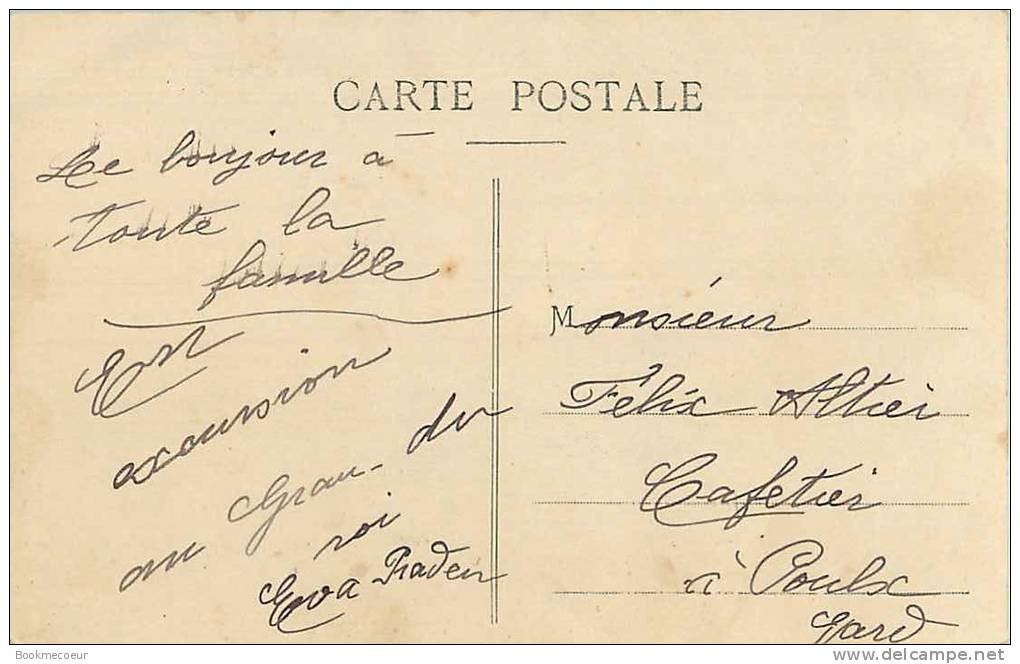 CARTE POSTALE
Le bonjour a
toute la
famille
En
excursion
au Grau-du
roi
Eva Praden
Monsieur
Félix Altier
Cafetier
à Poulx
Gard
Bookmecoeur
www.delcampe.net